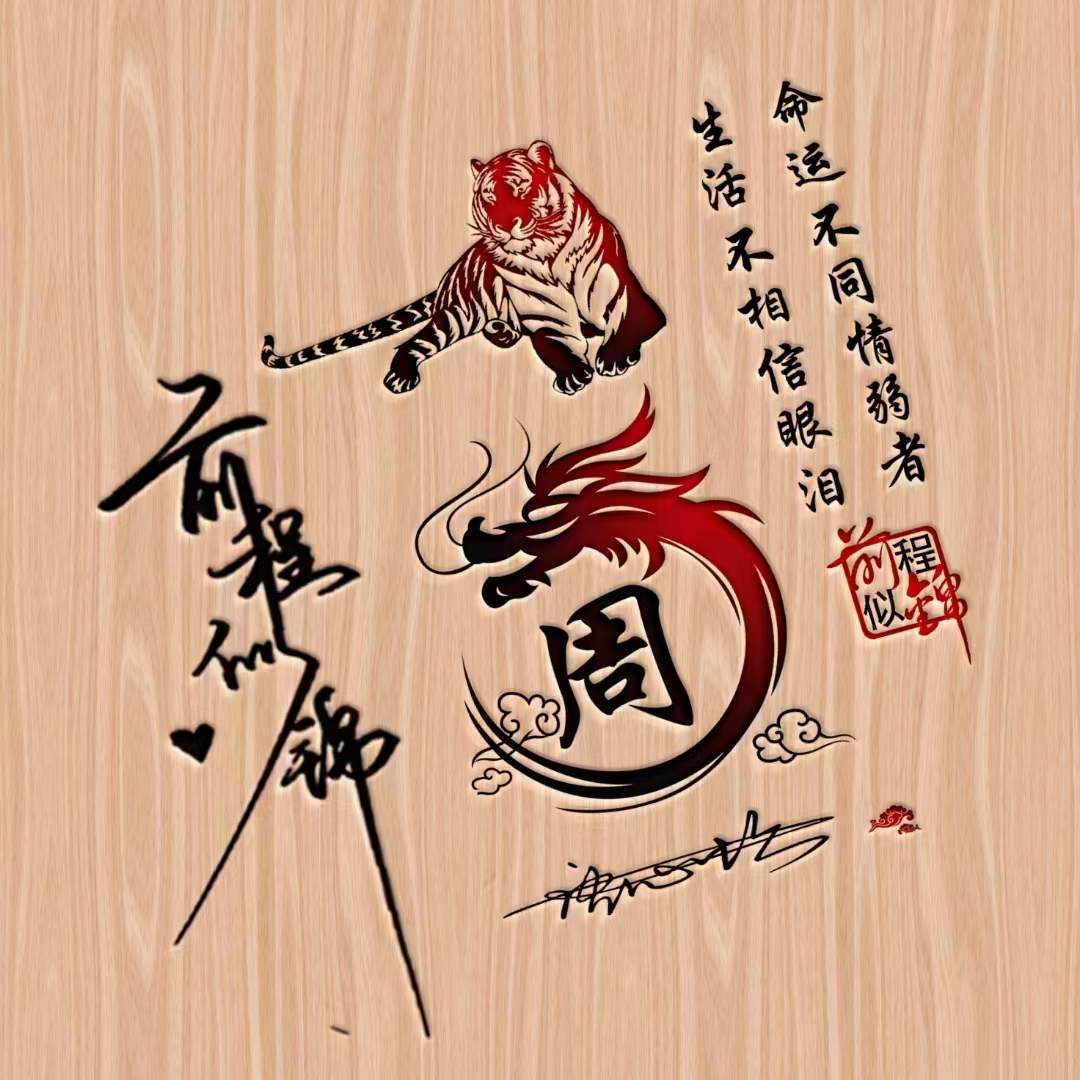 命运不同情弱者
生活不相信眼泪
前程似锦
周
前程似锦